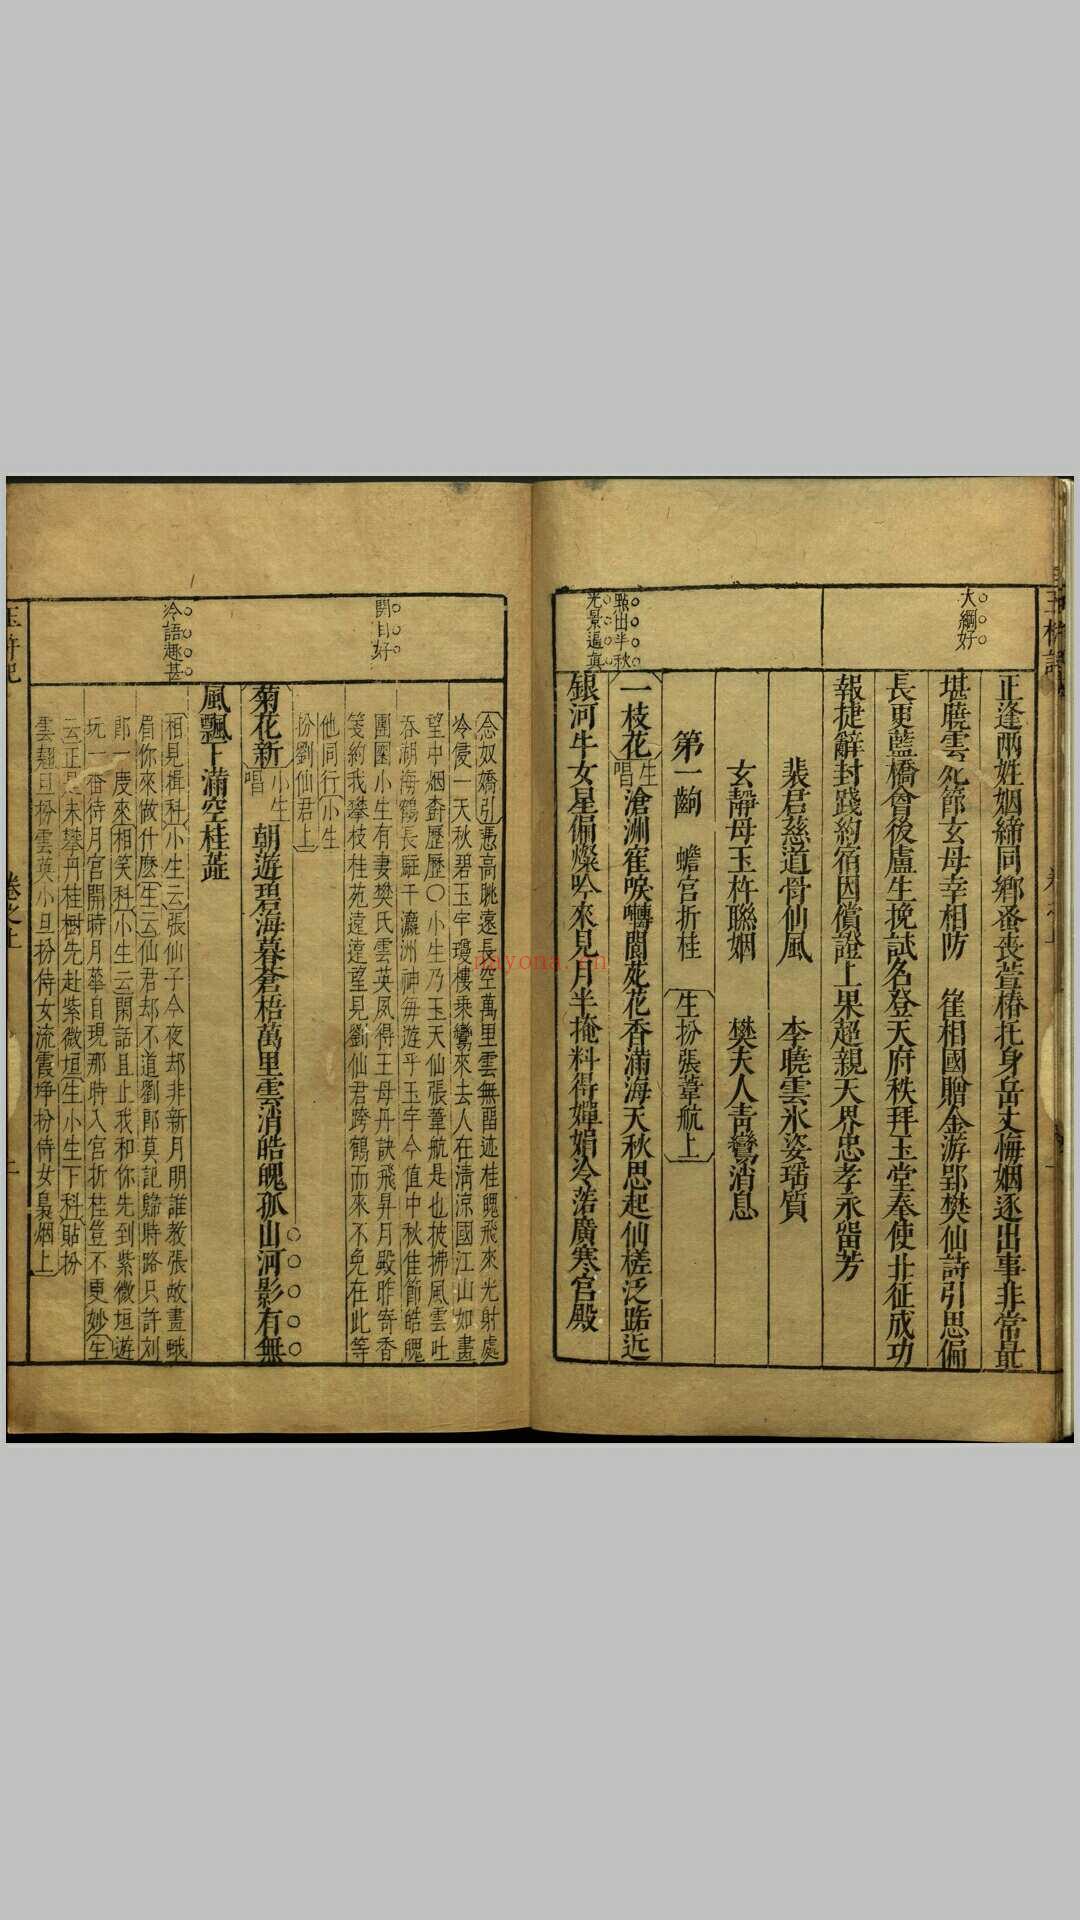 大綱好
點出半秋
光景逼真
正逢兩姓姻締同鄉蚤喪萱椿托身岳丈悔姻逐出事非常最
堪曉雲死節玄母幸相防 崔相國贈金游郢樊仙詩引思偏
長更藍橋會後盧生挽試名登天府秩拜玉堂奉使北征成功
報捷辭封踐約宿因償證上果超親天界忠孝永留芳
裴君慈道骨仙風 李曉雲氷姿瑀質
玄靜母玉杵聯姻 樊夫人青鸞消息
第一齣 蟾宮折桂 生扮張葦航上
一枝花 生唱 滄洲寉唳囀閬苑花香滿海天秋思起仙槎泛踮近
銀河牛女星偏燦吟來見月半掩料得嬋娟冷落廣寒宮殿
開目好
冷語趣甚
念奴嬌引 憑高眺遠長空萬里雲無畱迹桂魄飛來光射處
冷侵一天秋碧玉宇瓊樓乘鸞來去人在清涼國江山如畫
望中烟樹歷歷〇小生乃玉天仙張葦航是也披拂風雲吐
吞湖海鶴長駐于瀛洲神每遊乎玉宇今值中秋佳節皓魄
團圞小生有妻樊氏雲英夙得王母丹訣飛昇月殿昨寄香
箋約我攀枝桂苑遠遠望見劉仙君跨鶴而來不免在此等
他同行 小生扮劉仙君上
菊花新 小生唱 朝遊碧海暮蒼梧萬里雲消皓魄孤山河影有無
風飄下滿空桂蕋
相見揖科 小生云 張仙子今夜却非新月明誰教張敞畫蛾
眉你來做什麼 生云 仙君却不道劉郎莫記歸時路只許刘
郎一度來 相笑科 小生云 閑話且止我和你先到紫微垣遊
玩一番待月宮開時月華自現那時入宮折桂豈不更妙 生
云 正是未攀丹桂樹先赴紫微垣 生小生下科 貼扮
雲翹旦扮雲英小旦扮侍女流霞淨扮侍女裊烟上
玉杵記
卷之上
nayona.cn